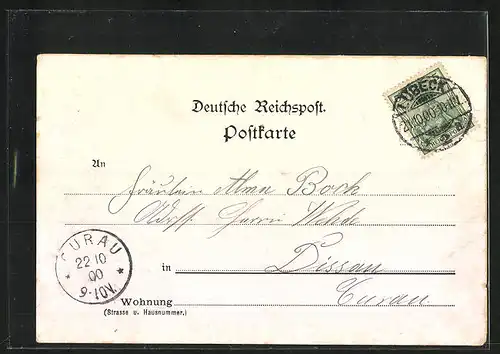 LÜBECK
Deutsche Reichspost.
Postkarte
An
Fräulein Alma Bock
Adr. Herrn Wehde
in Dissau
Curau
CURAU
22 10
00
9-10V.
Wohnung
(Strasse u. Hausnummer.)